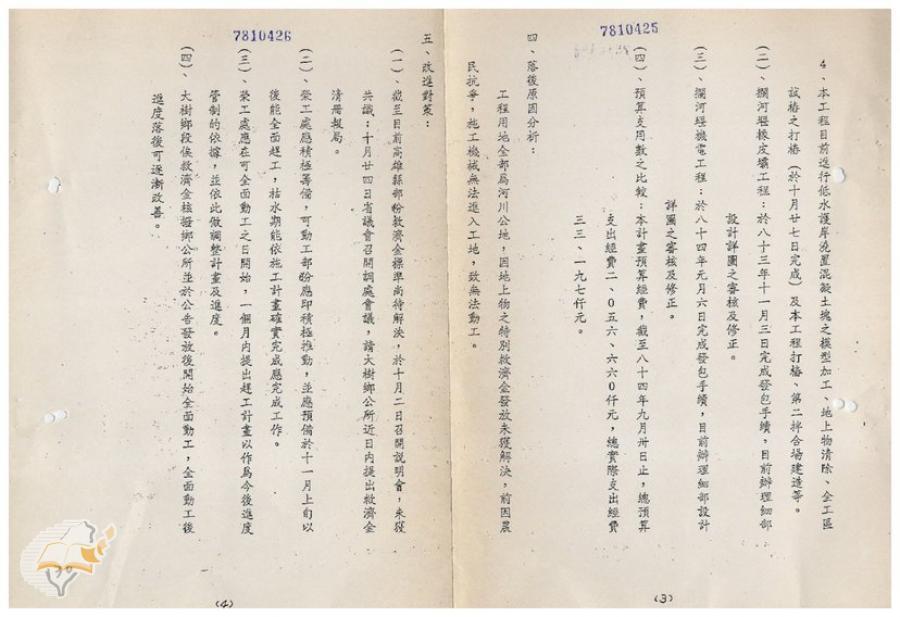 7810425
4、本工程目前進行低水護岸澆置混凝土塊之模型加工、地上物清除、全工區
試樁之打樁(於十月廿七日完成)及本工程打樁、第二拌合場建造等。
(二)、攔河堰橡皮壩工程:於八十三年十一月三日完成發包手續,目前辦理細部
設計詳圖之審核及修正。
(三)、攔河堰機電工程:於八十四年元月六日完成發包手續,目前辦理細部設計
詳圖之審核及修正。
(四)、預算支用數之比較:本計畫預算經費,截至八十四年九月卅日止,總預算
支出經費二、0五六、六六0仟元,總實際支出經費
三三、一九七仟元。
四、落後原因分析:
工程用地全部為河川公地,因地上物之特別救濟金發放未獲解決,前因農
民抗爭,施工機械無法進入工地,致無法動工。
(3)
7810426
五、改進對策:
(一)、截至目前高雄縣部份救濟金標準尚待解決,於十月二日召開說明會,未獲
共識;十月廿四日省議會召開調處會議,請大樹鄉公所近日內提出救濟金
清冊報局。
(二)、榮工處應積極籌備,可動工部份應即積極推動,並應預備於十一月上旬以
後能全面趕工,枯水期能依施工計畫確實完成應完成工作。
(三)、榮工處應在可全面動工之日開始,一個月內提出趕工計畫以作為今後進度
管制的依據,並依此做調整計畫及進度。
(四)、大樹鄉段俟救濟金核撥鄉公所並於公告發放後開始全面動工,全面動工後
進度落後可逐漸改善。
30
(4)